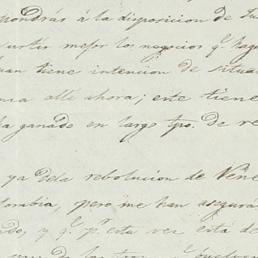 pondrás á la disposicion de Su
urtir mejor los negocios q.e hag
uan tiene intencion de situa
nia alli ahora; este tiene
ha ganado en largo tpo. de re
ya dela rebolucion de Vene
lombia, pero me han asegura
do, y q.e p.r esta vez está de